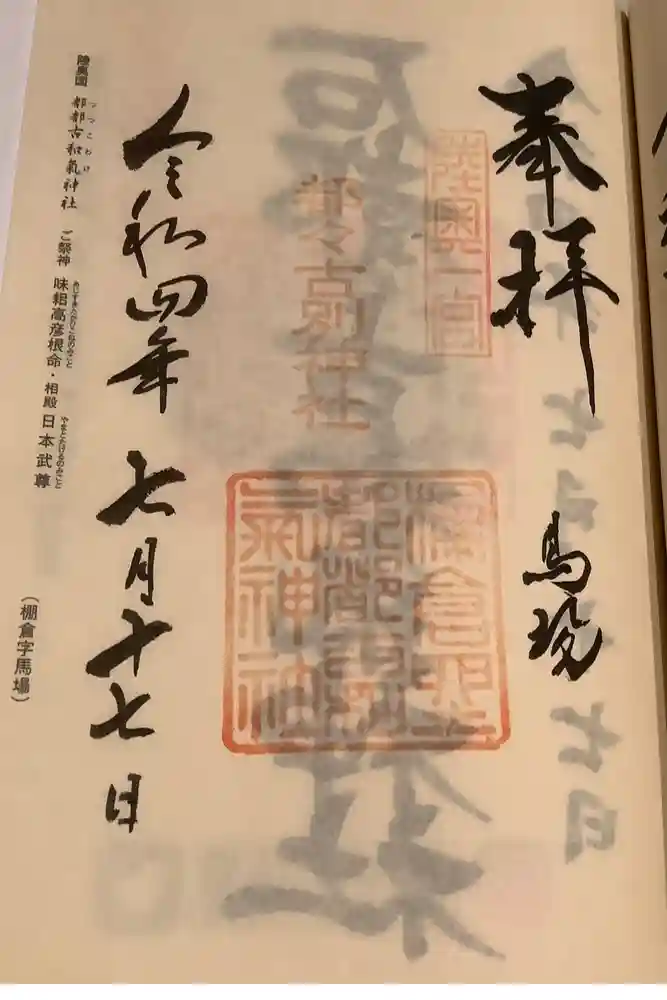 奉拝 馬場
陸奥一宮
都々古別神社
令和四年 七月十七日
陸奥國 都都古和氣神社 ご祭神 味耜高彦根命・相殿 日本武尊
つつこわけ
あじすきたかひこねのみこと
やまとたけるのみこと
（棚倉字馬場）